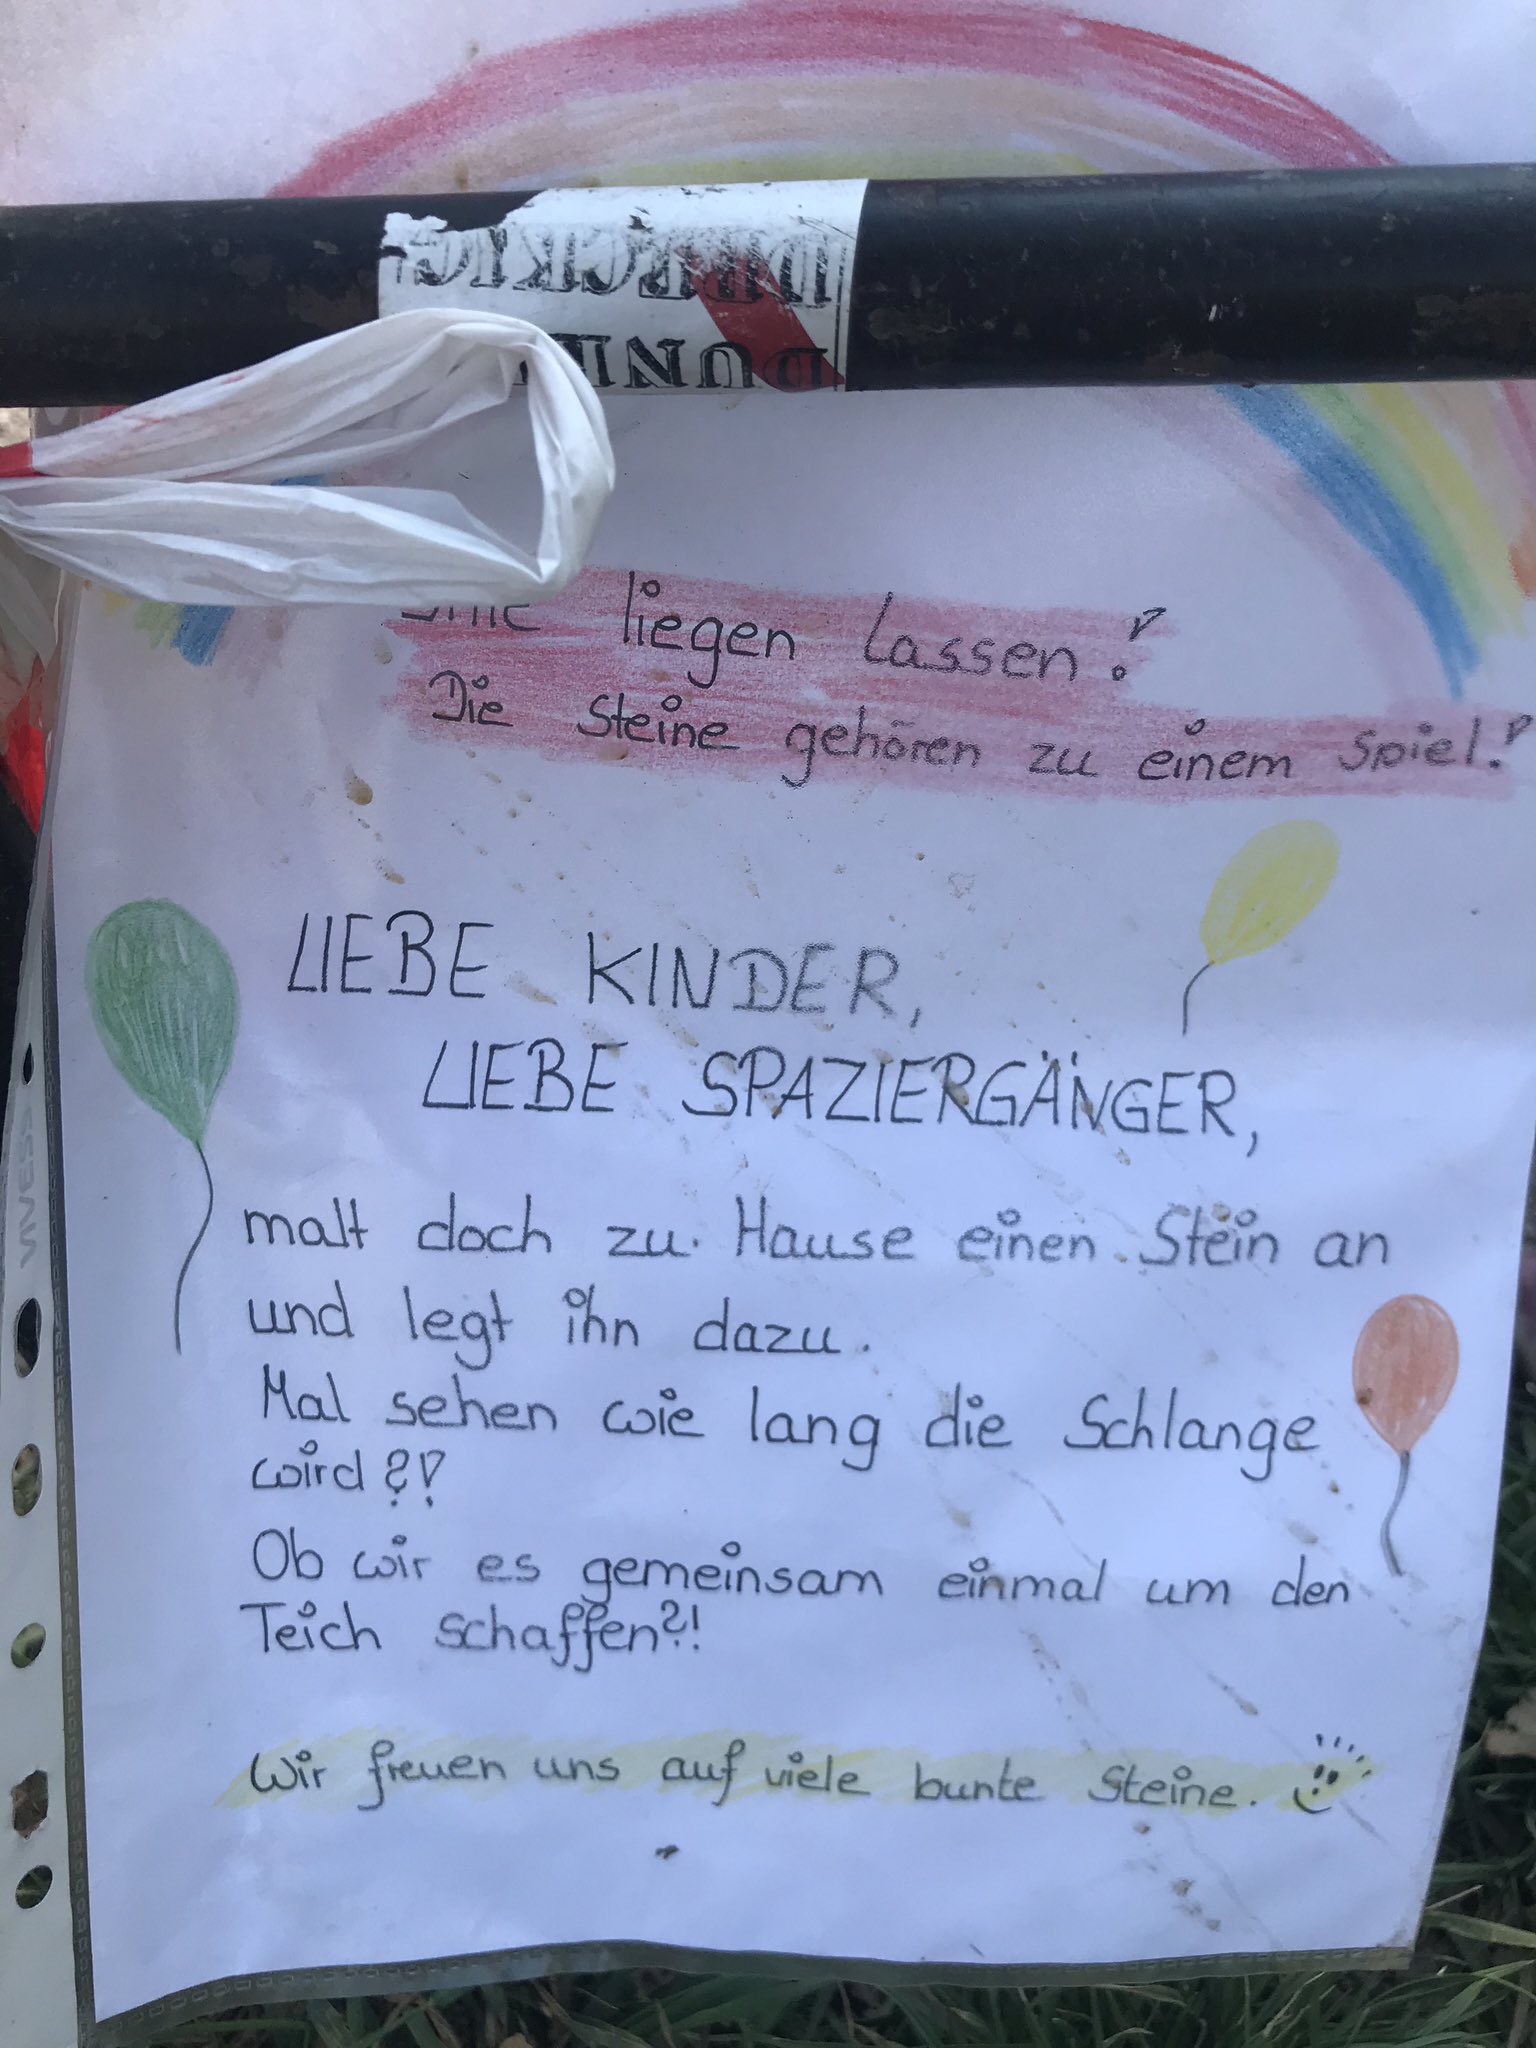 DRECKIG
liegen lassen!
Die Steine gehören zu einem Spiel!
LIEBE KINDER,
LIEBE SPAZIERGÄNGER,
malt doch zu Hause einen Stein an
und legt ihn dazu.
Mal sehen wie lang die Schlange
wird?!
Ob wir es gemeinsam einmal um den
Teich schaffen?!
Wir freuen uns auf viele bunte Steine.